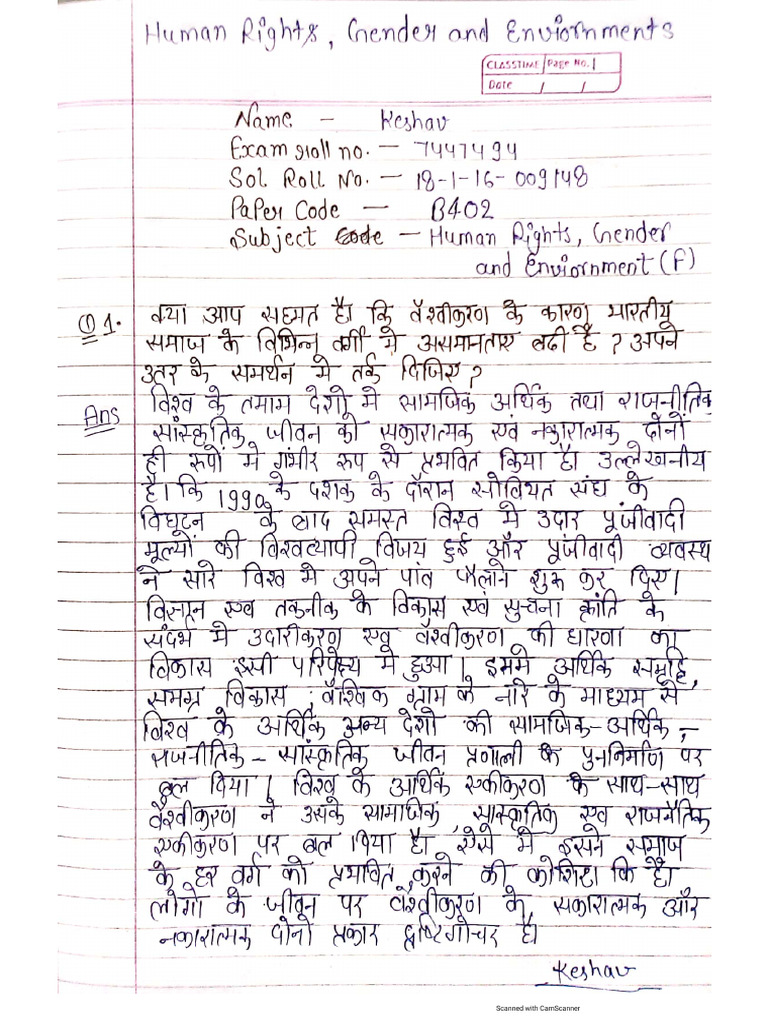 Human Rights, Gender and Enviornments
CLASSTIME Page No. 1
Date / /
Name - Keshav
Exam roll no. - 7447494
Sol Roll No. - 18-1-16-009148
Paper Code - B402
Subject Code - Human Rights, Gender
and Enviornment (F)
Q1. क्या आप सहमत है। कि वॅश्वीकरण के कारण भारतीय
समाज के विभिन्न वर्गो मे असमानताए बढी है ? अपने
उतर के समर्थन मे तर्क दिजिए ?
Ans विश्व के तमाम देशो मे सामजिक आर्थिक तथा राजनीतिक
सांस्कृतिक जीवन को सकारात्मक एवं नकारात्मक दोनों
ही रूपों मे गंभीर रूप से प्रभवित किया है। उल्लेखनीय
है। कि 1990 के दशक के दौरान सोवियत संघ के
विघटन के बाद समस्त विश्व मे उदार पूंजीवादी
मूल्यों की विश्वव्यापी विजय हुई और पूंजीवादी व्यवस्थ
ने सारे विश्व मे अपने पांव फैलाने शुरू कर दिए।
विज्ञान एव तकनीक के विकास एवं सुचना क्रांति के
संदर्भ मे उदारीकरण एव वॅश्वीकरण की धारणा का
विकास इसी परिपेक्ष्य मे हुआ। इसमे आर्थिक समृद्दि,
समग्र विकास, वैश्विक ग्राम के नारे के माध्यम से
विश्व के आर्थिक अन्य देशो की सामजिक-आर्थिक,-
राजनीतिक - सांस्कृतिक जीवन प्रणाली के पुननिर्माण पर
बल दिया। विश्व के आर्थिक एकीकरण के साथ-साथ
वैश्वीकरण ने उसके सामाजिक, सांस्कृतिक एव राजनैतिक
एकीकरण पर बल दिया है। ऐसे मे इसने समाज
के हर वर्ग को प्रभावित करने की कोशिश कि है।
लोगो के जीवन पर वॅश्वीकरण के सकारात्मक और
नकारात्मक दोनो प्रकार दृष्टिगोचर है।
Keshav
Scanned with CamScanner